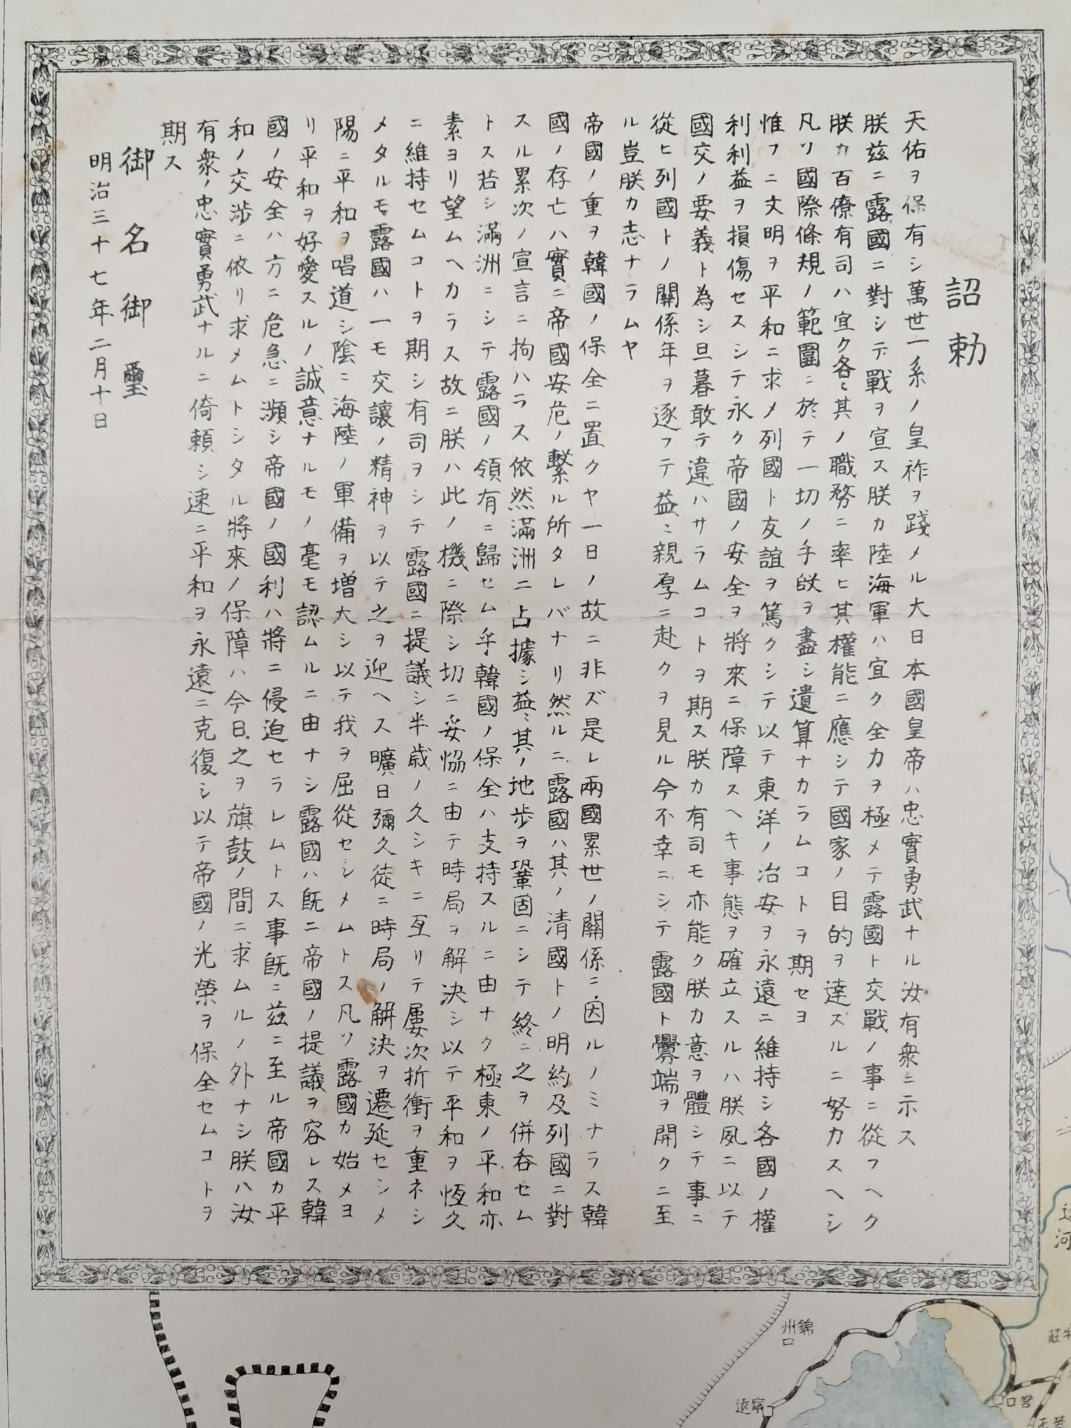 詔勅
天佑ヲ保有シ萬世一系ノ皇祚ヲ踐メル大日本國皇帝ハ忠實勇武ナル汝有衆ニ示ス
朕茲ニ露國ニ對シテ戰ヲ宣ス朕カ陸海軍ハ宜ク全力ヲ極メテ露國ト交戰ノ事ニ從フヘク
朕カ百僚有司ハ宜ク各〻其ノ職務ニ率ヒ其權能ニ應シテ國家ノ目的ヲ達スルニ努力スヘシ
凡ソ國際條規ノ範圍ニ於テ一切ノ手段ヲ盡シ遺算ナカラムコトヲ期セヨ
惟フニ文明ヲ平和ニ求メ列國ト友誼ヲ篤クシテ以テ東洋ノ治安ヲ永遠ニ維持シ各國ノ權
利利益ヲ損傷セスシテ永ク帝國ノ安全ヲ將來ニ保障スヘキ事態ヲ確立スルハ朕夙ニ以テ
國交ノ要義ト為シ旦暮敢テ違ハサラムコトヲ期ス朕カ有司モ亦能ク朕カ意ヲ體シテ事ニ
從ヒ列國トノ關係年ヲ逐フテ益〻親厚ニ赴クヲ見ル今不幸ニシテ露國ト釁端ヲ開クニ至
ル豈朕カ志ナラムヤ
帝國ノ重ヲ韓國ノ保全ニ置クヤ一日ノ故ニ非ズ是レ兩國累世ノ關係ニ因ルノミナラス韓
國ノ存亡ハ實ニ帝國安危ノ繫ル所タレバナリ然ルニ露國ハ其ノ清國トノ明約及列國ニ對
スル累次ノ宣言ニ拘ハラス依然滿洲ニ占據シ益〻其ノ地歩ヲ鞏固ニシテ終ニ之ヲ併呑セム
トス若シ滿洲ニシテ露國ノ領有ニ歸セム乎韓國ノ保全ハ支持スルニ由ナク極東ノ平和亦
素ヨリ望ムヘカラス故ニ朕ハ此ノ機ニ際シ切ニ妥協ニ由テ時局ヲ解決シ以テ平和ヲ恆久
ニ維持セムコトヲ期シ有司ヲシテ露國ニ提議シ半歳ノ久シキニ亙リテ屢次折衝ヲ重ネシ
メタルモ露國ハ一モ交讓ノ精神ヲ以テ之ヲ迎ヘス曠日彌久徒ニ時局ノ解決ヲ遷延セシメ
陽ニ平和ヲ唱道シ陰ニ海陸ノ軍備ヲ增大シ以テ我ヲ屈從セシメムトス凡ソ露國カ始メヨ
リ平和ヲ好愛スルノ誠意ナルモノ毫モ認ムルニ由ナシ露國ハ既ニ帝國ノ提議ヲ容レス韓
國ノ安全ハ方ニ危急ニ瀕シ帝國ノ國利ハ將ニ侵迫セラレムトス事既ニ茲ニ至ル帝國カ平
和ノ交渉ニ依リ求メムトシタル將來ノ保障ハ今日之ヲ旗鼓ノ間ニ求ムルノ外ナシ朕ハ汝
有衆ノ忠實勇武ナルニ倚賴シ速ニ平和ヲ永遠ニ克復シ以テ帝國ノ光榮ヲ保全セムコトヲ
期ス
御名御璽
明治三十七年二月十日
錦州口
寧遠
營口